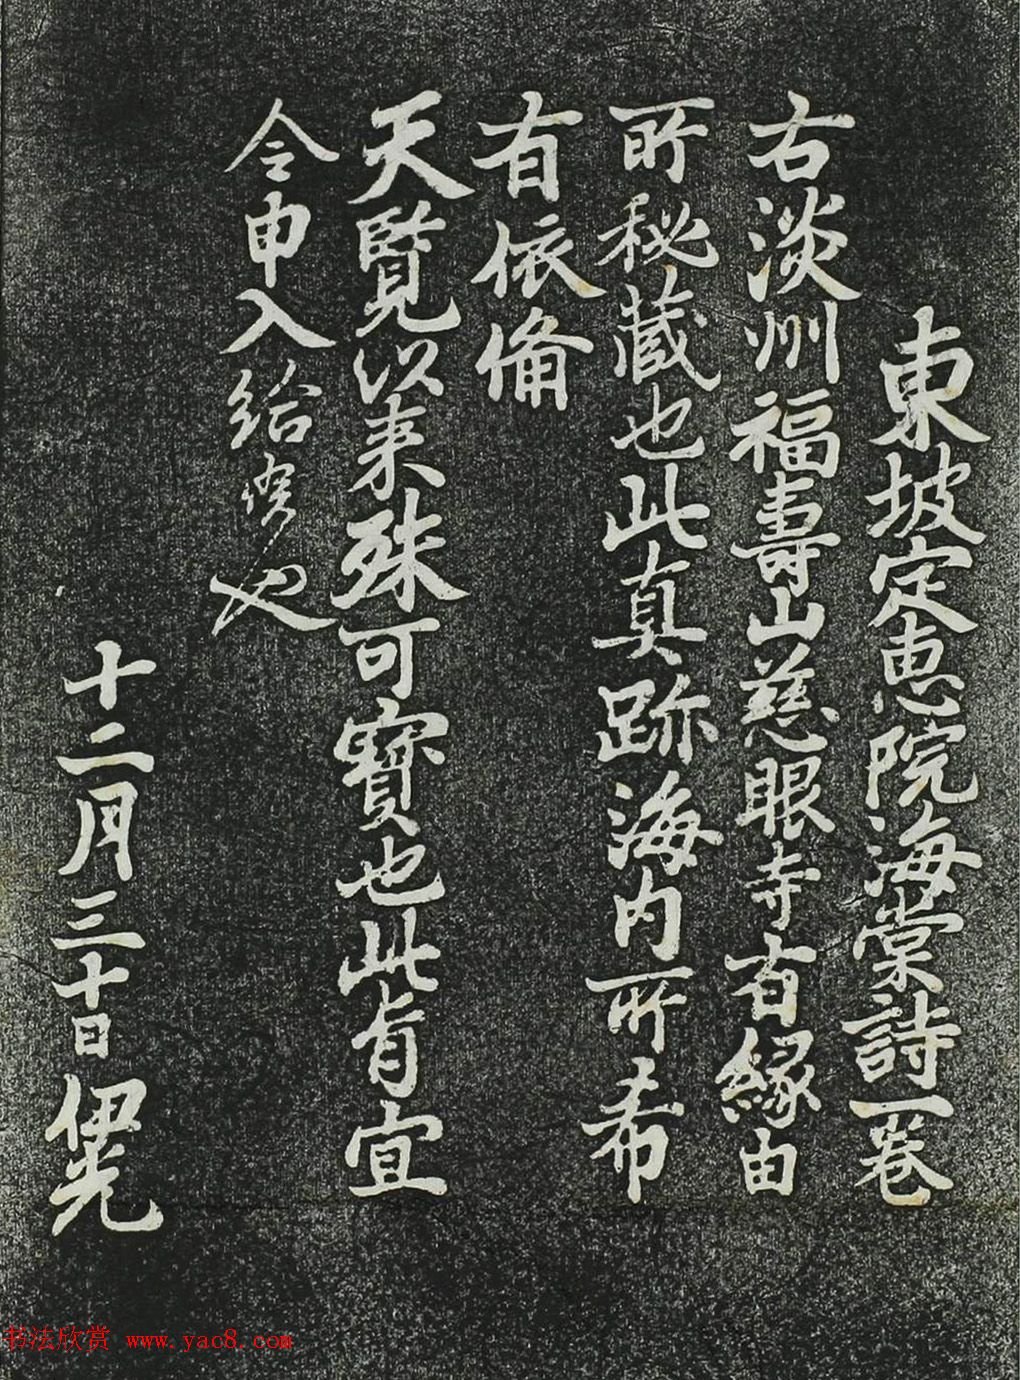 東坡定恵院海棠詩一卷
右淡州福壽山慈眼寺有縁由
所秘蔵也此真跡海内所希
有依備
天覧以来殊可寳也此旨宜
令申入給也
十二月三十日 伊光
书法欣赏 www.yac8.com